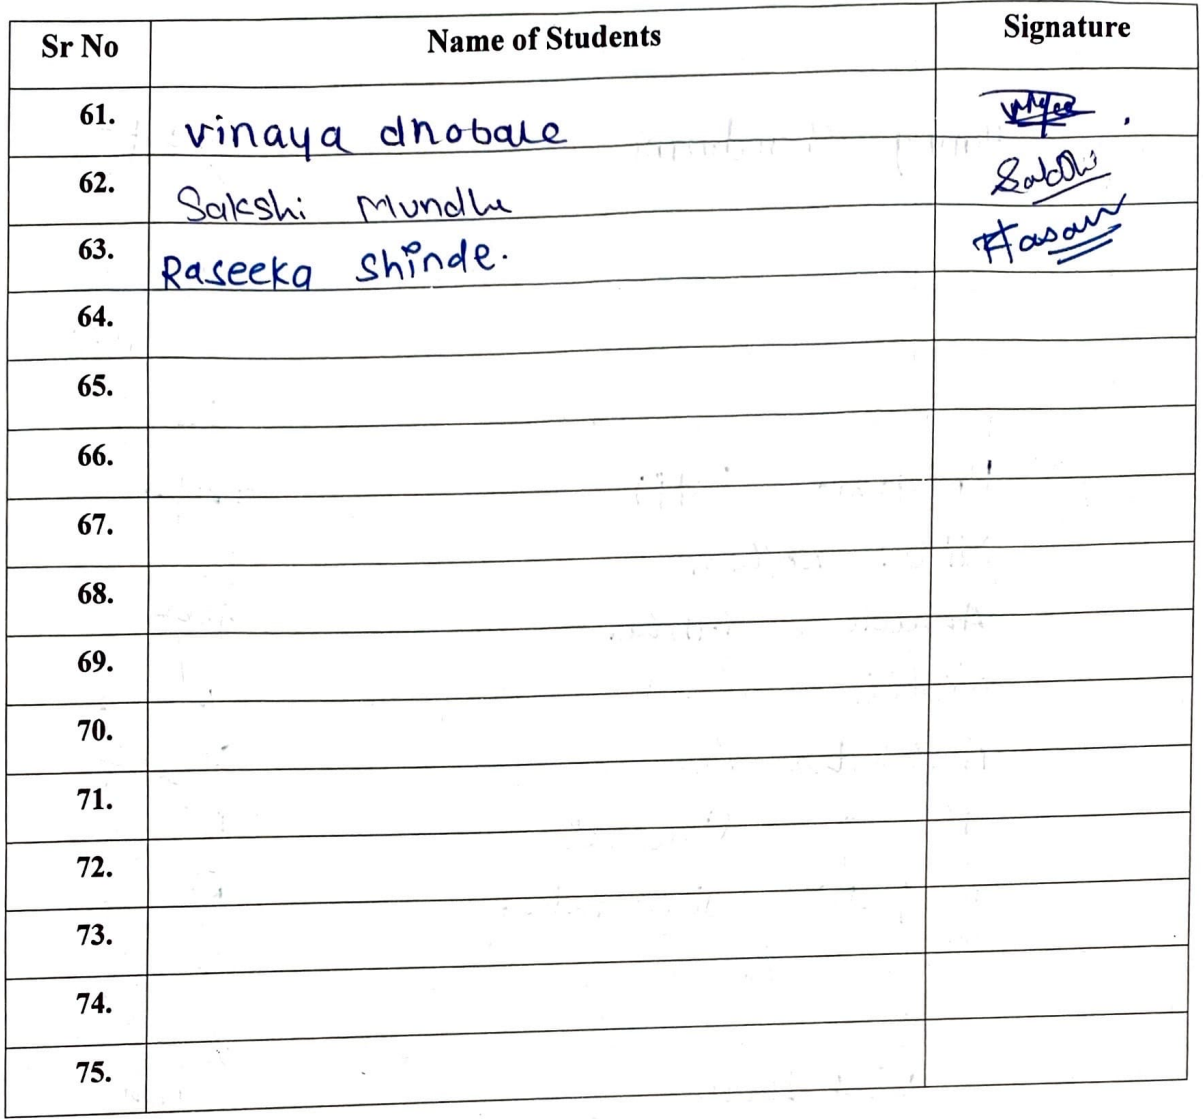 Sr No Name of Students Signature
61. vinaya dhobale
62. Sakshi Mundhe Sakshi
63. Raseeka Shinde.
64.
65.
66.
67.
68.
69.
70.
71.
72.
73.
74.
75.